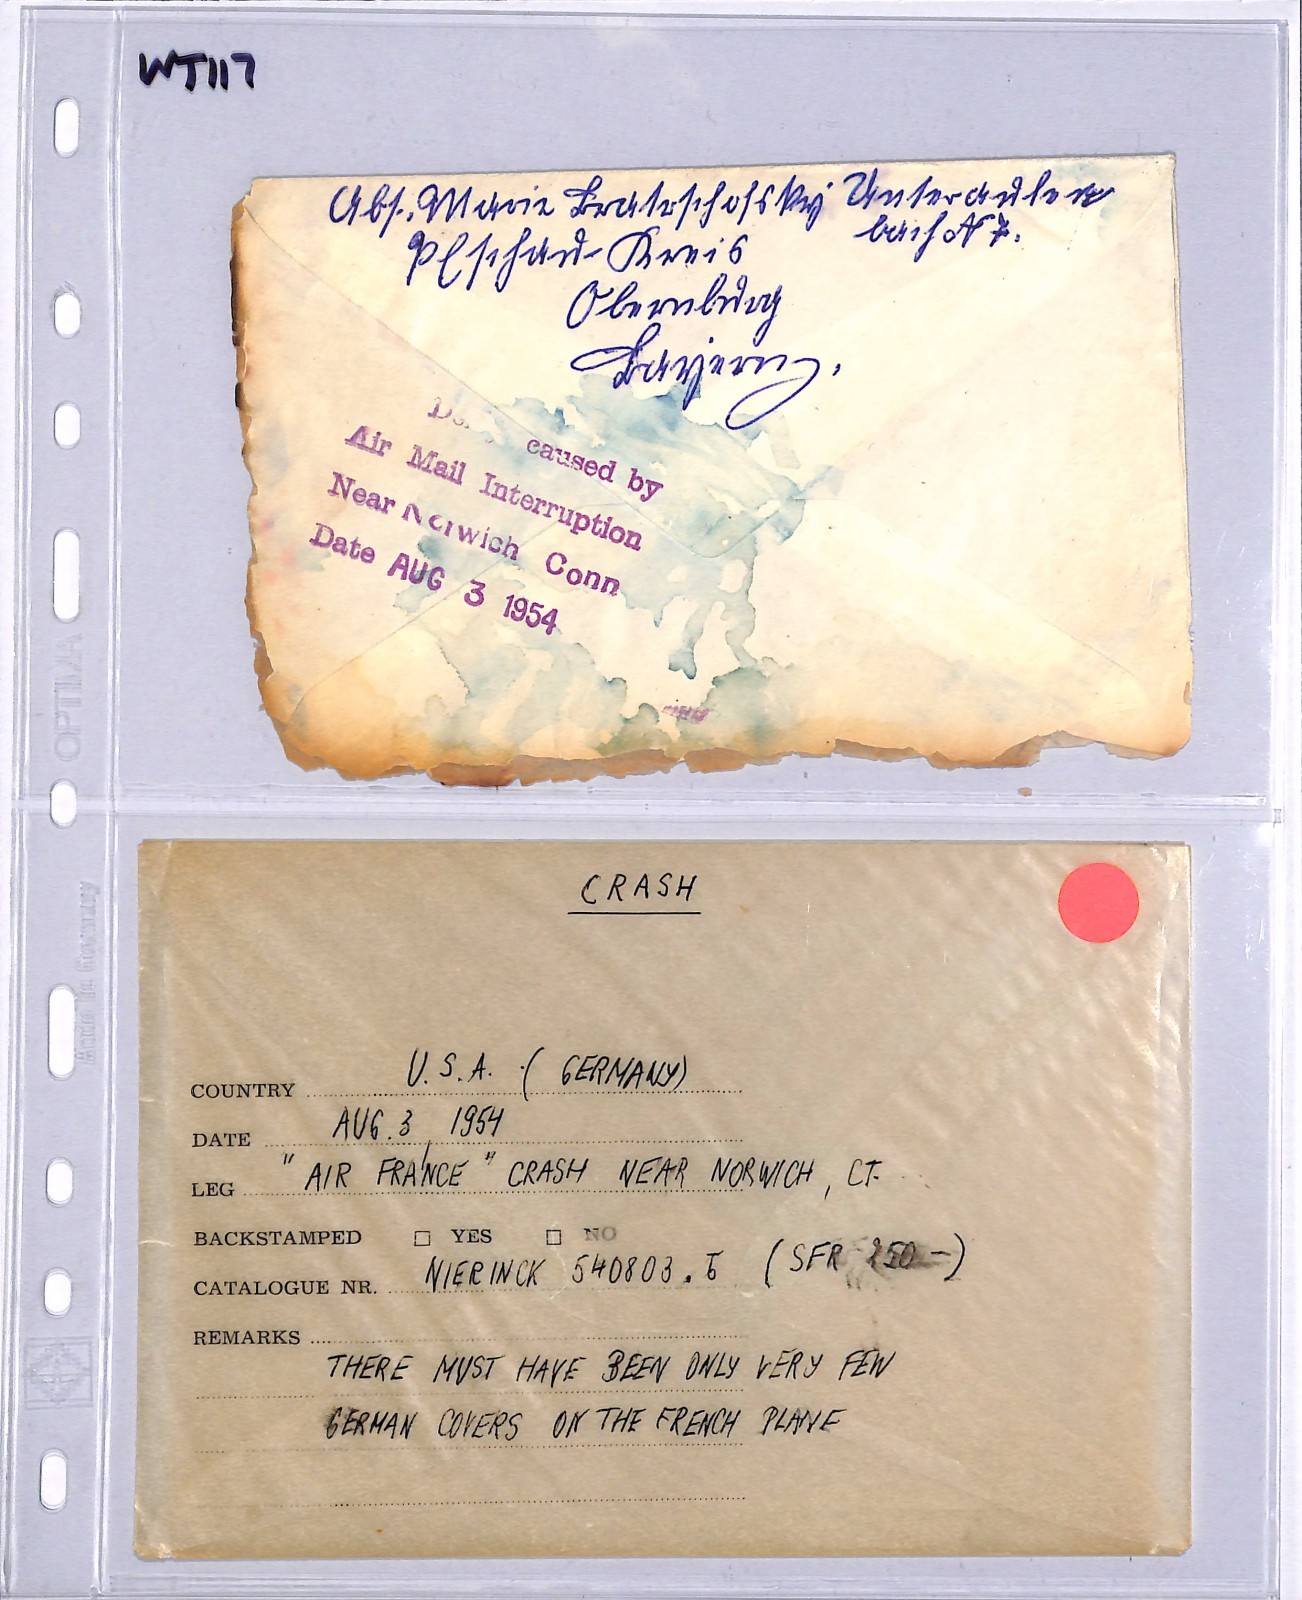 WT117
Abs. Marie Unteraulen
bach N 7.
Kreis
Obernburg
Bayern.
caused by
Air Mail Interruption
Near Norwich Conn
Date AUG 3 1954
OPTIMA
Made in Germany
CRASH
COUNTRY U.S.A. (GERMANY)
DATE AUG. 3, 1954
LEG "AIR FRANCE" CRASH NEAR NORWICH, CT.
BACKSTAMPED □ YES □ NO
CATALOGUE NR. NIERINCK 540803. (SFR 250 -)
REMARKS
THERE MUST HAVE BEEN ONLY VERY FEW
GERMAN COVERS ON THE FRENCH PLANE